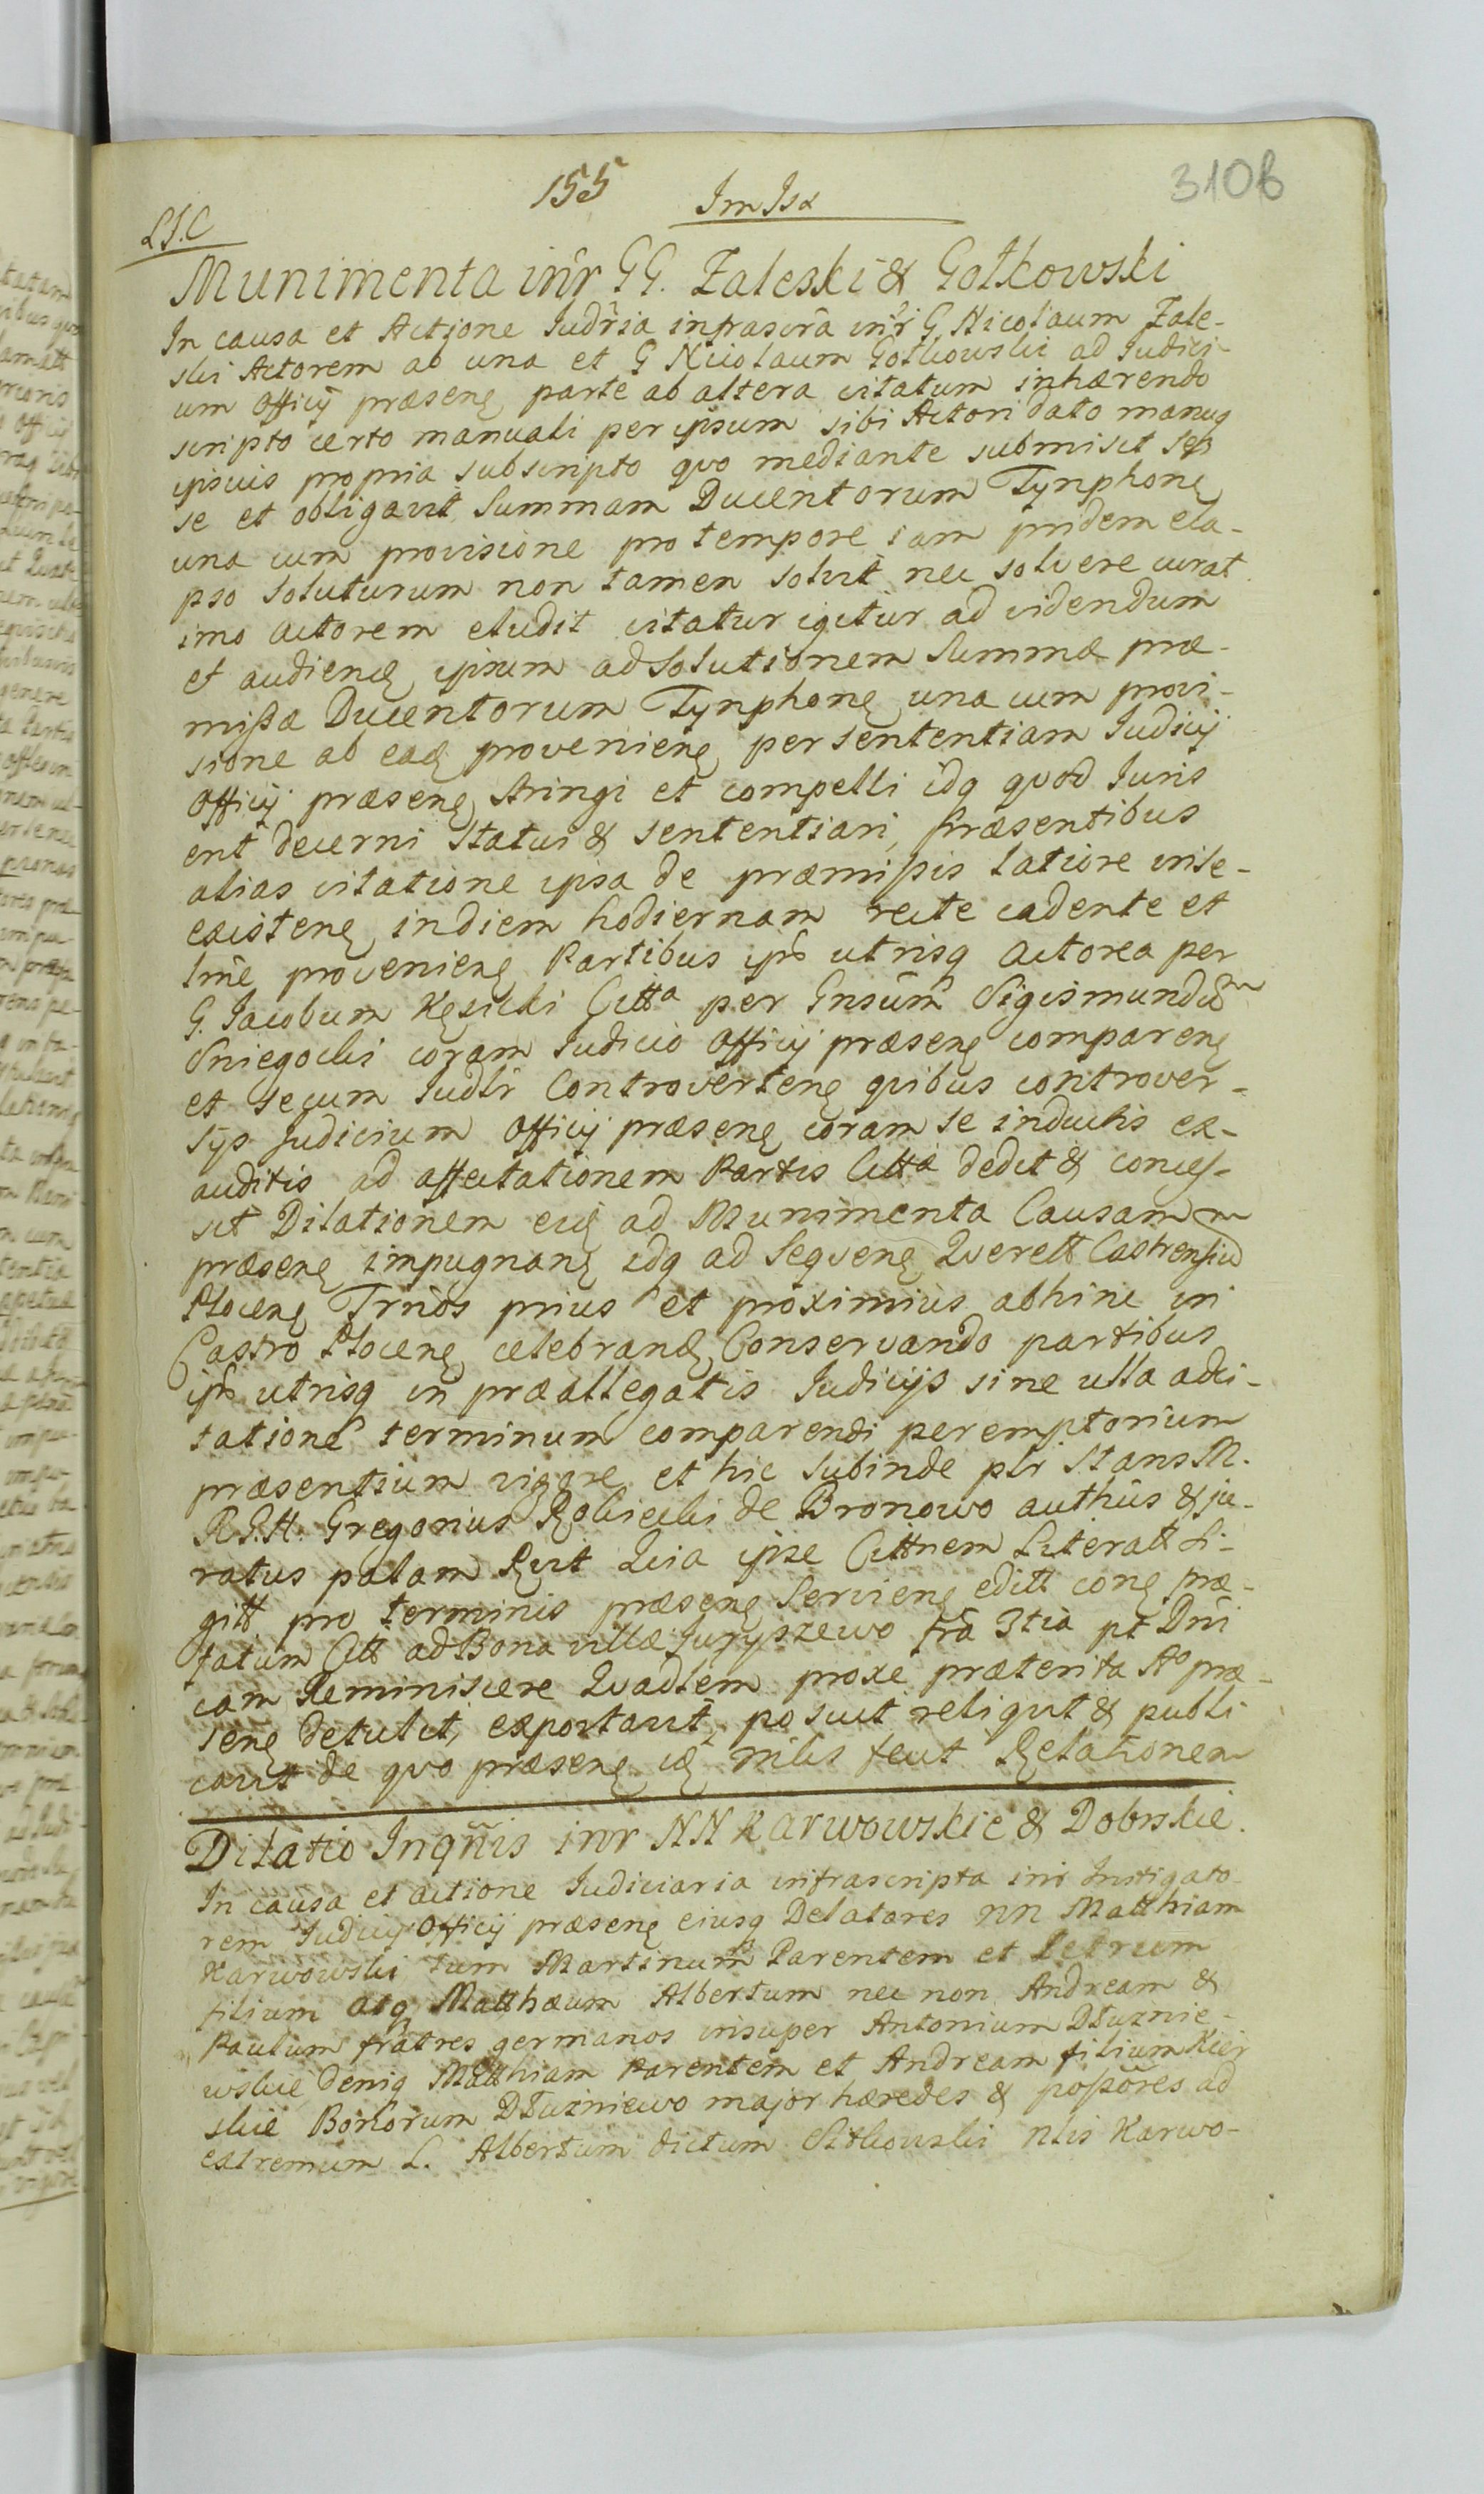 155
3108
LS.C
Munimenta inr GG. Zaleski & Gołkowski
In causa et Actione Judria infrascra inr G Nicolaum Zale-
ski Actorem ab una et G Nicolaum Gołkowski ad Judici-
um Officij præsenę parte ab altera citatum inhærendo
scripto certo manuali per ipsum sibi Actori dato manuq
ipsius propria subscripto quo mediante submisit
se et obligavit Summam Ducentorum Tynphonę
una cum provisione pro tempore iam pridem ela-
pso soluturum non tamen solvit nec solvere curat
imo actorem eludit citatur igitur ad videndum
et audiendę ipsum ad Solutionem Summæ præ-
mißæ Ducentorum Tynphonę una cum provi-
sione ab eadę provenienę per sententiam Judicij
Officij præsenę stringi et compelli idq quod Juris
erit decerni statui & sententiari, Præsentibus
alias citatione ipsa de præmißis latiore in se
existenę in diem hodiernam recte cadente et
tme provenienę Partibus ips utrisq actorea per
G. Jacobum Kęsicki Citta per Gnsum Sigismundum
Sniegocki coram Judicio Officij præsenę comparenę
et secum Judlr Controvertenę quibus controver-
sijs Judicium Officij præsenę coram se inductis ex-
auditis ad affectationem Partis Citta dedit & conces-
sit Dilationem eidę ad Munimenta Causam
præsenę impugnanę idq ad Seqvenę Qverell Castrensium
Plocenę Trnos prius et proximius abhinc in
Castro Plocenę celebrandę Conservando partibus
ips utrisq in præallegatis Judicijs sine ulla adci-
tatione terminum comparendi peremptorium
præsentium vigore et hic subinde plr Stans M.
R.G.H. Gregorius Rokicki de Bronowo authus & ju-
ratus palam Rvit Quia ipse Cittnem Literatt Si-
gitt pro terminis præsenę Servienę editt conę præ-
fatum Citt ad Bona villæ Juryszewo fra 3tia pt Dni
cam Reminiscere Qvadlem proxe præterita Ao præ-
senę detulit, exportavit, posuit reliqvit & publi
cavit de quo præsenę idę mlis fecit Relationem
Dilatio Inqnis inr NN Karwowskie & Dobrskie.
In causa et actione Judiciaria infrascripta inr Instigato-
rem Judicij Officij præsenę eiusq Delatores NN Matthiam
Karwowski tum Martinum Parentem et Petrum
filium atq Matthæum Albertum nec non Andream &
Paulum fratres germanos insuper Antonium Dłuznie-
wskie deniq Matthiam Parentem et Andream filium Kier
skie Bonorum Dłuzniewo major hæredes & poßores ad
extremum L. Albertum dictum Sitkowski Nlis Karwo-